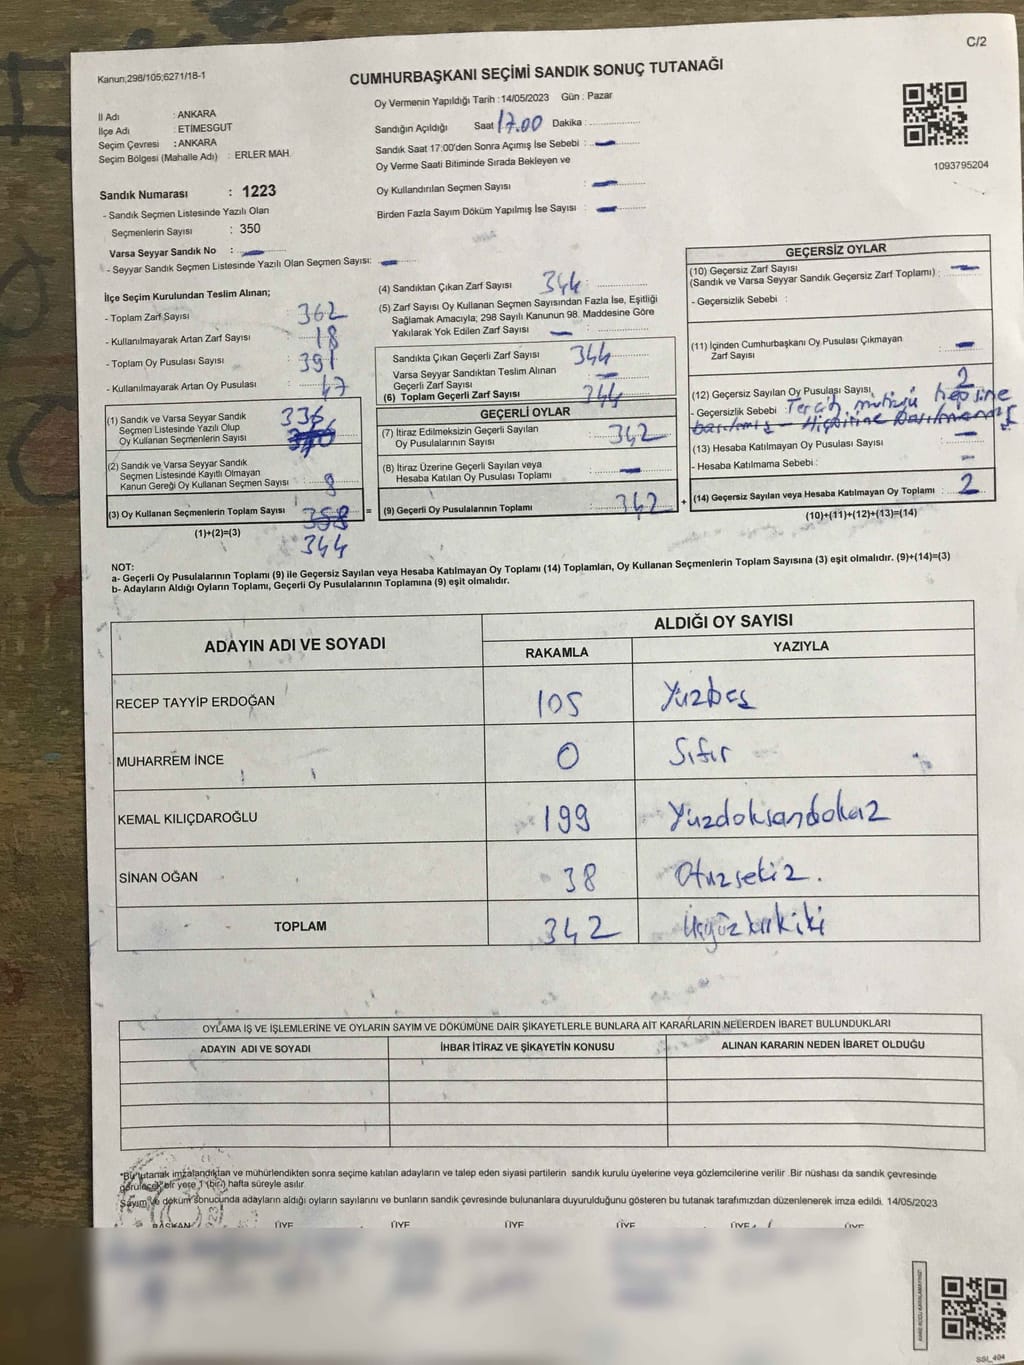 C/2
Kanun;298/105;6271/18-1
CUMHURBAŞKANI SEÇİMİ SANDIK SONUÇ TUTANAĞI
İl Adı : ANKARA
İlçe Adı : ETİMESGUT
Seçim Çevresi : ANKARA
Seçim Bölgesi (Mahalle Adı) : ERLER MAH.
Sandık Numarası : 1223
- Sandık Seçmen Listesinde Yazılı Olan
Seçmenlerin Sayısı : 350
Varsa Seyyar Sandık No : -
- Seyyar Sandık Seçmen Listesinde Yazılı Olan Seçmen Sayısı: -
Oy Vermenin Yapıldığı Tarih : 14/05/2023 Gün : Pazar
Sandığın Açıldığı Saat 17.00 Dakika :
Sandık Saat 17:00'den Sonra Açımış İse Sebebi : -
Oy Verme Saati Bitiminde Sırada Bekleyen ve
Oy Kullandırılan Seçmen Sayısı : -
Birden Fazla Sayım Döküm Yapılmış İse Sayısı : -
1093795204
İlçe Seçim Kurulundan Teslim Alınan;
- Toplam Zarf Sayısı : 362
- Kullanılmayarak Artan Zarf Sayısı : 18
- Toplam Oy Pusulası Sayısı : 391
- Kullanılmayarak Artan Oy Pusulası : 47
(1) Sandık ve Varsa Seyyar Sandık
Seçmen Listesinde Yazılı Olup
Oy Kullanan Seçmenlerin Sayısı : 336
(2) Sandık ve Varsa Seyyar Sandık
Seçmen Listesinde Kayıtlı Olmayan
Kanun Gereği Oy Kullanan Seçmen Sayısı : 8
(3) Oy Kullanan Seçmenlerin Toplam Sayısı : 358
344
(1)+(2)=(3)
(4) Sandıktan Çıkan Zarf Sayısı : 344
(5) Zarf Sayısı Oy Kullanan Seçmen Sayısından Fazla İse, Eşitliği
Sağlamak Amacıyla; 298 Sayılı Kanunun 98. Maddesine Göre
Yakılarak Yok Edilen Zarf Sayısı : -
Sandıkta Çıkan Geçerli Zarf Sayısı : 344
Varsa Seyyar Sandıktan Teslim Alınan
Geçerli Zarf Sayısı : -
(6) Toplam Geçerli Zarf Sayısı : 344
GEÇERLİ OYLAR
(7) İtiraz Edilmeksizin Geçerli Sayılan
Oy Pusulalarının Sayısı : 342
(8) İtiraz Üzerine Geçerli Sayılan veya
Hesaba Katılan Oy Pusulası Toplamı : -
= (9) Geçerli Oy Pusulalarının Toplamı : 342 +
GEÇERSİZ OYLAR
(10) Geçersiz Zarf Sayısı
(Sandık ve Varsa Seyyar Sandık Geçersiz Zarf Toplamı) : -
- Geçersizlik Sebebi :
(11) İçinden Cumhurbaşkanı Oy Pusulası Çıkmayan
Zarf Sayısı : -
(12) Geçersiz Sayılan Oy Pusulası Sayısı : 2
- Geçersizlik Sebebi : Tercih mührü hepsine
basılmış - Hiçbirine basılmamış
(13) Hesaba Katılmayan Oy Pusulası Sayısı : -
- Hesaba Katılmama Sebebi : -
(14) Geçersiz Sayılan veya Hesaba Katılmayan Oy Toplamı : 2
(10)+(11)+(12)+(13)=(14)
NOT:
a- Geçerli Oy Pusulalarının Toplamı (9) ile Geçersiz Sayılan veya Hesaba Katılmayan Oy Toplamı (14) Toplamları, Oy Kullanan Seçmenlerin Toplam Sayısına (3) eşit olmalıdır. (9)+(14)=(3)
b- Adayların Aldığı Oyların Toplamı, Geçerli Oy Pusulalarının Toplamına (9) eşit olmalıdır.
ADAYIN ADI VE SOYADI
ALDIĞI OY SAYISI
RAKAMLA YAZIYLA
RECEP TAYYİP ERDOĞAN 105 Yüzbeş
MUHARREM İNCE 0 Sıfır
KEMAL KILIÇDAROĞLU 199 Yüzdoksandokuz
SİNAN OĞAN 38 Otuzsekiz.
TOPLAM 342 Üçyüzkırkiki
OYLAMA İŞ VE İŞLEMLERİNE VE OYLARIN SAYIM VE DÖKÜMÜNE DAİR ŞİKAYETLERLE BUNLARA AİT KARARLARIN NELERDEN İBARET BULUNDUKLARI
ADAYIN ADI VE SOYADI İHBAR İTİRAZ VE ŞİKAYETİN KONUSU ALINAN KARARIN NEDEN İBARET OLDUĞU
*Bu tutanak imzalandıktan ve mühürlendikten sonra seçime katılan adayların ve talep eden siyasi partilerin sandık kurulu üyelerine veya gözlemcilerine verilir. Bir nüshası da sandık çevresinde
görülecek bir yere 1 (bir) hafta süreyle asılır.
Sayım ve döküm sonucunda adayların aldığı oyların sayılarını ve bunların sandık çevresinde bulunanlara duyurulduğunu gösteren bu tutanak tarafımızdan düzenlenerek imza edildi. 14/05/2023
BAŞKAN ÜYE ÜYE ÜYE ÜYE ÜYE ÜYE